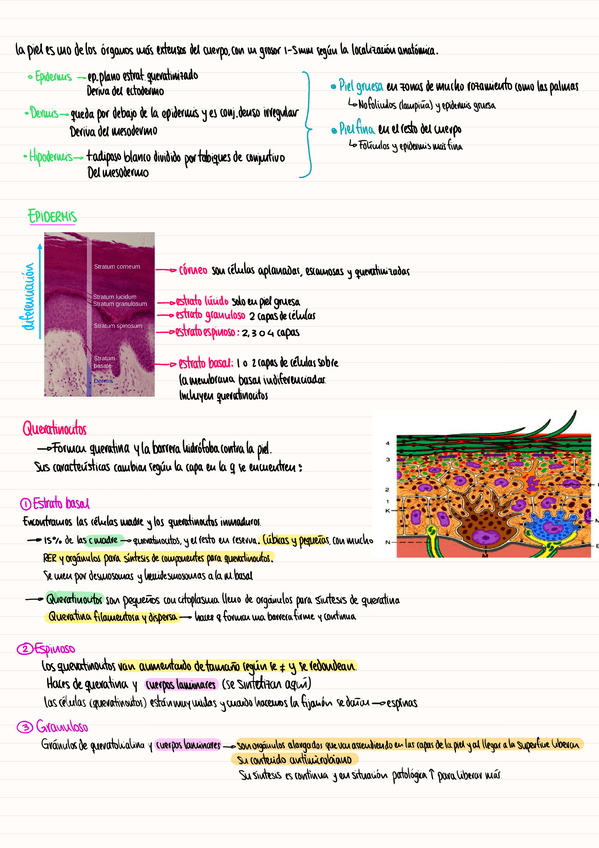 la piel es uno de los órganos más extensos del cuerpo, con un grosor 1-5mm según la localización anatómica.
• Epidermis → ep. plano estrat. queratinizado
Deriva del ectodermo
• Dermis → queda por debajo de la epidermis y es conj. denso irregular
Deriva del mesodermo
• Hipodermis → t adiposo blanco dividido por tabiques de conjuntivo
Del mesodermo
• Piel gruesa en zonas de mucho rozamiento como las palmas
↳ No folículos (lampiña) y epidermis gruesa
• Piel fina en el resto del cuerpo
↳ Folículos y epidermis más fina
EPIDERMIS
diferenciación
Stratum corneum
Stratum lucidum
Stratum granulosum
Stratum spinosum
Stratum
basale
Dermis
→ córneo son células aplanadas, escamosas y queratinizadas
→ estrato lúcido solo en piel gruesa
→ estrato granuloso 2 capas de células
→ estrato espinoso: 2, 3 o 4 capas
→ estrato basal: 1 o 2 capas de células sobre
la membrana basal indiferenciadas
Incluyen queratinocitos
Queratinocitos
→ Forman queratina y la barrera hidrófoba contra la piel.
Sus características cambian según la capa en la q se encuentren:
4
3
2
1
K
N
M
① Estrato basal
Encontramos las células madre y los queratinocitos inmaduros
→ 15% de las c madre → queratinocitos, y el resto en reserva. Cúbicas y pequeñas, con mucho
RER y orgánulos para síntesis de componentes para queratinocitos.
Se unen por desmosomas y hemidesmosomas a la m basal
→ Queratinocitos son pequeños con citoplasma lleno de orgánulos para síntesis de queratina
Queratina filamentosa y dispersa → haces q forman una barrera firme y continua
② Espinoso
los queratinocitos van aumentando de tamaño según se ≠ y se redondean
Haces de queratina y cuerpos laminares (se sintetizan aquí)
las células (queratinocitos) están muy unidas y cuando hacemos la fijación se dañan → espinas
③ Granuloso
Gránulos de queratohialina y cuerpos laminares → son orgánulos alargados que van ascendiendo en las capas de la piel y al llegar a la superficie liberan
su contenido antimicrobiano
Su síntesis es continua y en situación patológica ↑ para liberar más